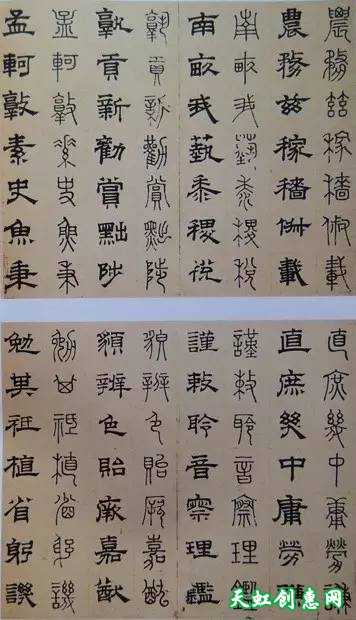 農務茲稼穡俶載
農務茲稼穡俶載
南畝我藝黍稷稅
南畝我藝黍稷稅
孰貢新勸賞黜陟
孰貢新勸賞黜陟
孟軻敦素史魚秉
孟軻敦素史魚秉
直庶幾中庸勞謙
直庶幾中庸勞謙
謹敕聆音察理鑑
謹敕聆音察理鑑
貌辨色貽厥嘉猷
貌辨色貽厥嘉猷
勉其祗植省躬譏
勉其祗植省躬譏
天虹创意网